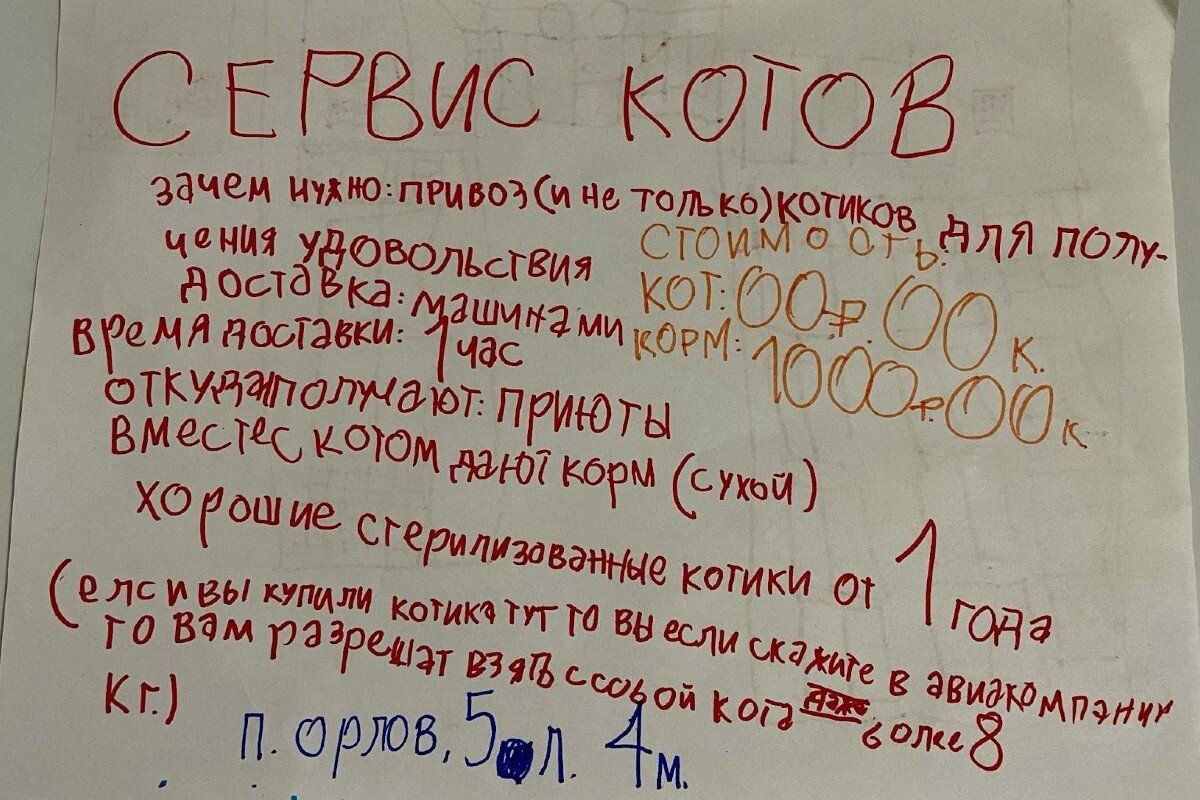 СЕРВИС КОТОВ
зачем нужно: привоз (и не только) котиков для полу-
чения удовольствия
СТОИМОСТЬ:
доставка: машинами
КОТ: 00 ₽. 00 к.
время доставки: 1 час
КОРМ: 1000 ₽. 00 к.
откуда получают: приюты
вместе с котом дают корм (сухой)
хорошие стерилизованные котики от 1 года
(елси вы купили котика тут то вы если скажите в авиакомпании
то вам разрешат взять ссобой кота даже более 8
кг.)
П. ОРЛОВ, 5 л. 4 м.